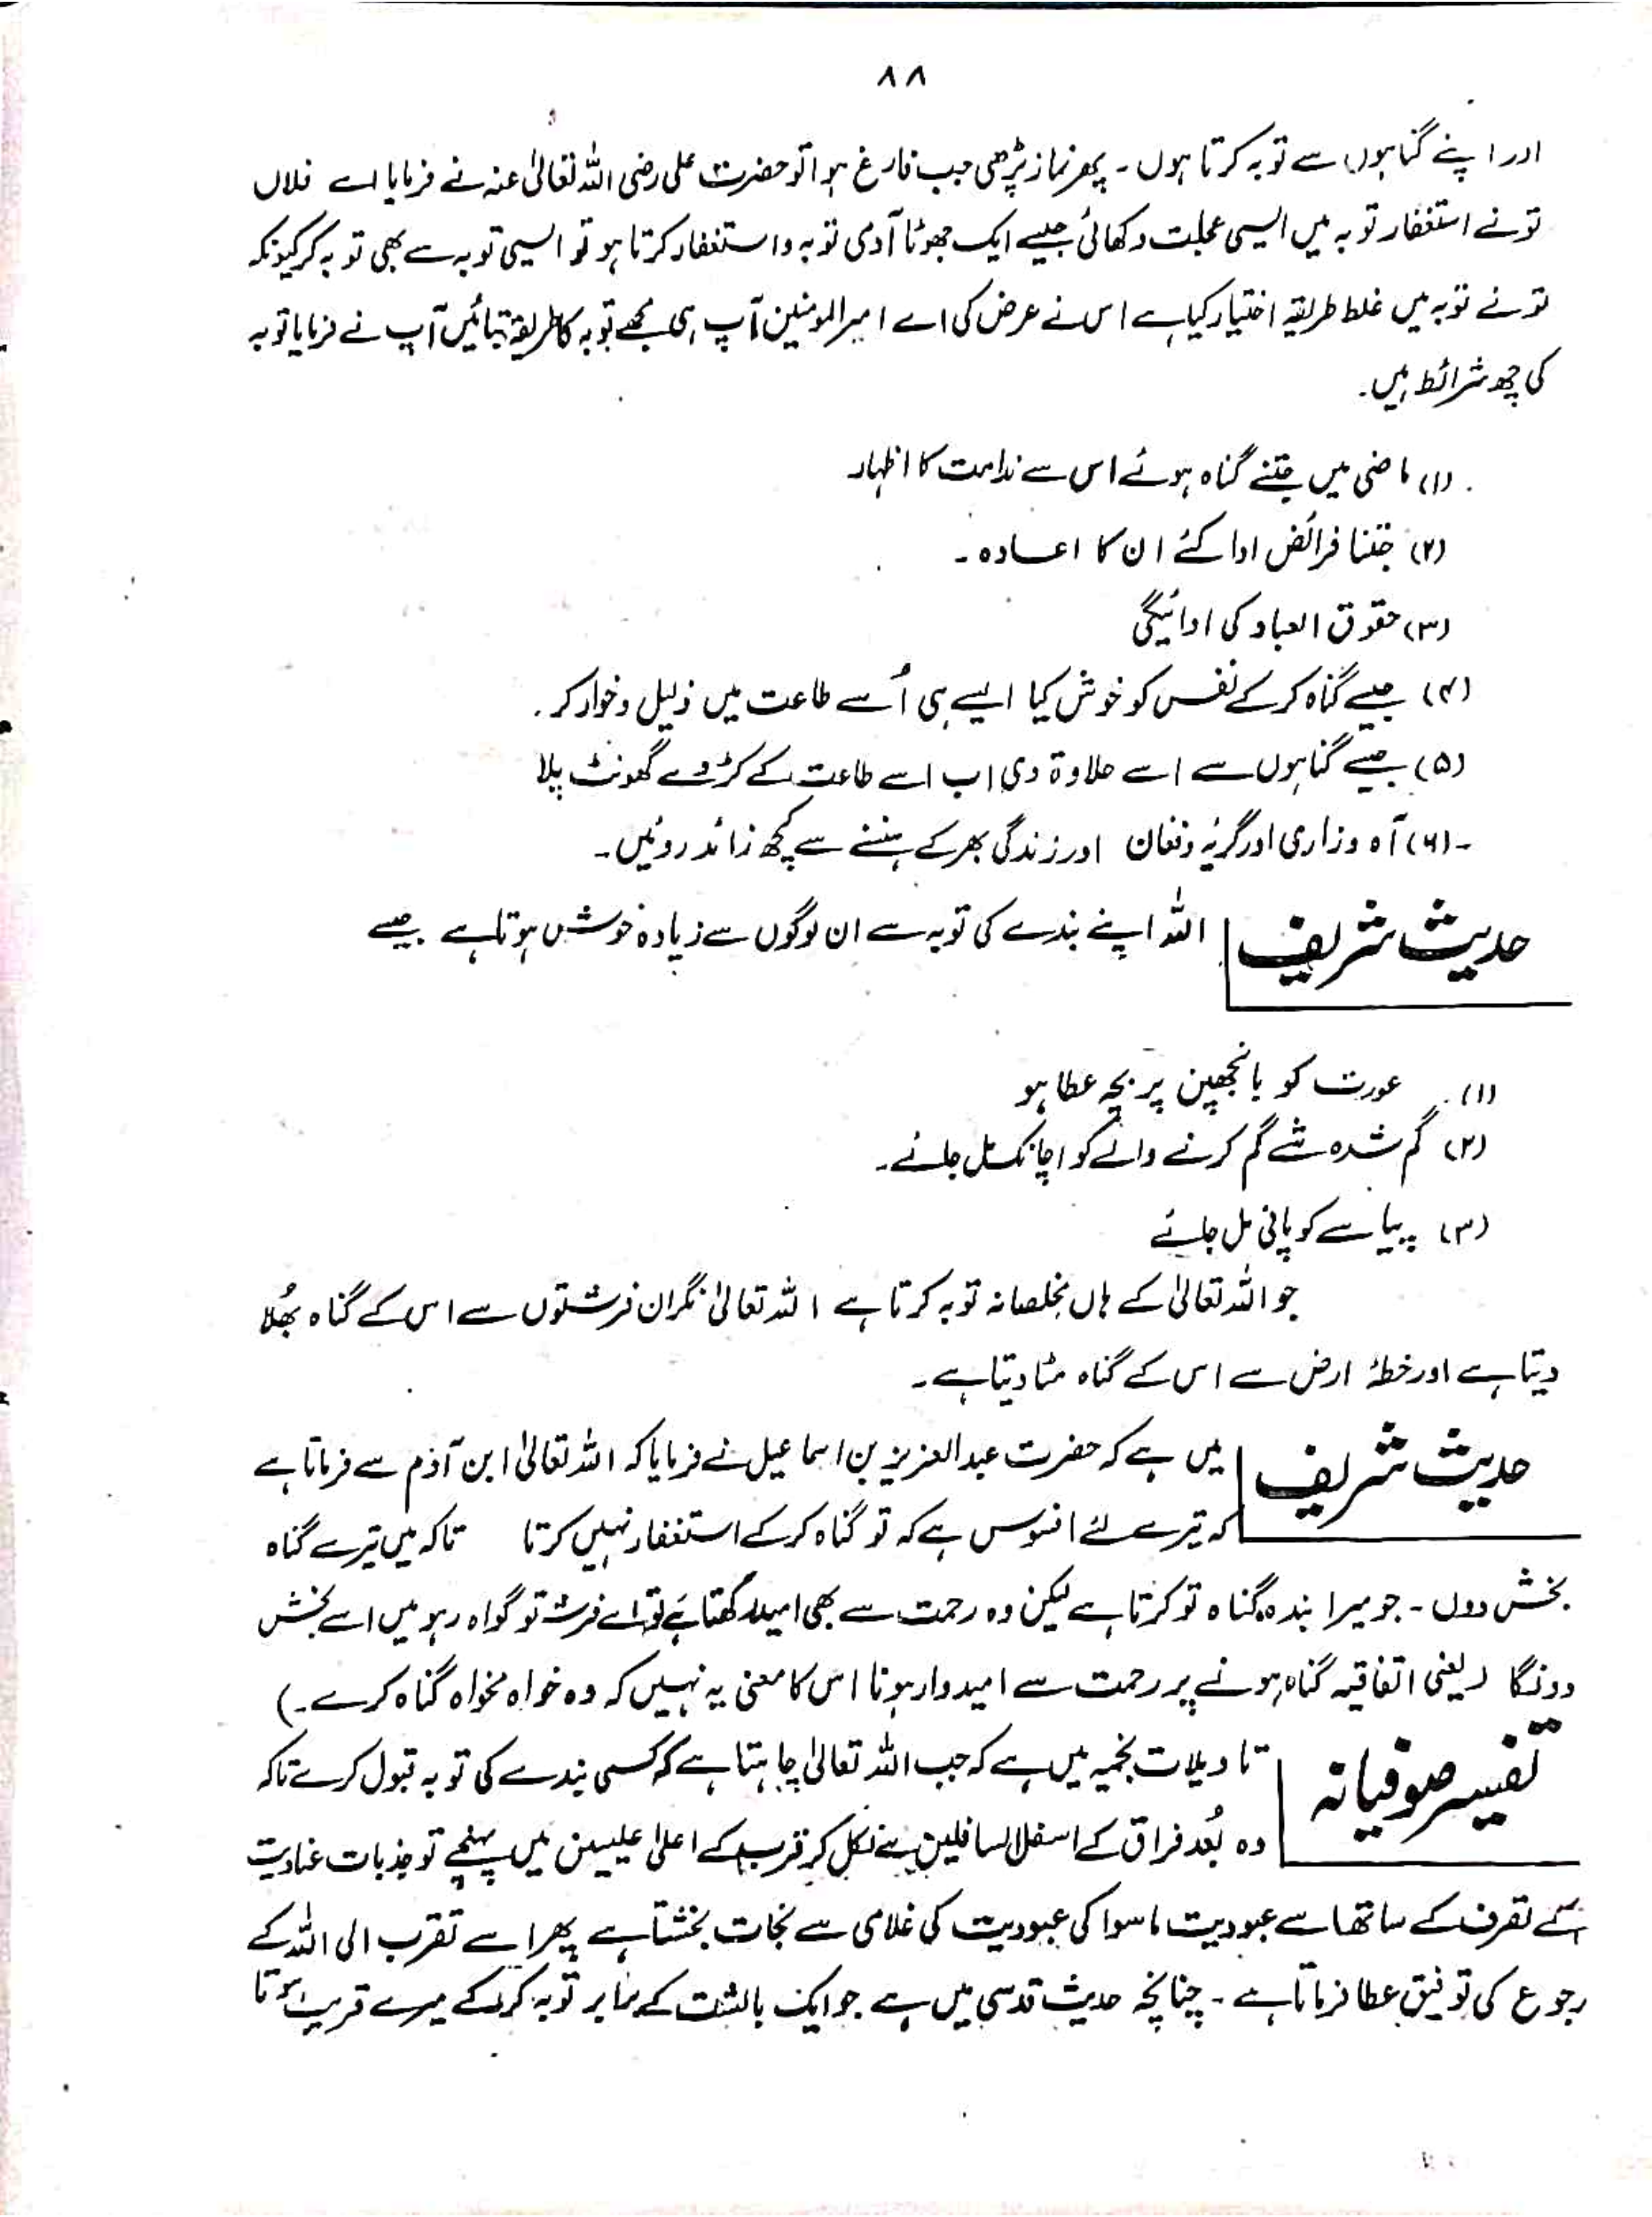 ۸۸
اور اپنے گناہوں سے توبہ کرتا ہوں۔ پھر نماز پڑھی جب فارغ ہوا تو حضرت علی رضی اللہ تعالیٰ عنہ نے فرمایا اے فلاں
تو نے استغفار توبہ میں ایسی عجلت دکھائی جیسے ایک جھوٹا آدمی توبہ و استغفار کرتا ہو تو ایسی توبہ سے بھی توبہ کر کیونکہ
تو نے توبہ میں غلط طریقہ اختیار کیا ہے اس نے عرض کی اے امیرالمومنین آپ ہی مجھے توبہ کا طریقہ بتائیں آپ نے فرمایا توبہ
کی چھ شرائط ہیں۔
(۱) ماضی میں جتنے گناہ ہوئے اس سے ندامت کا اظہار
(۲) جتنا فرائض ادا کئے ان کا اعادہ۔
(۳) حقوق العباد کی ادائیگی
(۴) جیسے گناہ کر کے نفس کو خوش کیا ایسے ہی اُسے طاعت میں ذلیل و خوار کر۔
(۵) جیسے گناہوں سے اسے حلاوۃ دی اب اسے طاعت کے کڑوے گھونٹ پلا
۔(۶) آہ و زاری اور گریہ و فغان اور زندگی بھر کے ہنسنے سے کچھ زائد روئیں۔
حدیث شریف اللہ اپنے بندے کی توبہ سے ان لوگوں سے زیادہ خوش ہوتا ہے جیسے
(۱) عورت کو بانجھپن پر بچہ عطا ہو
(۲) گم شدہ شے گم کرنے والے کو اچانک مل جائے۔
(۳) پیاسے کو پانی مل جائے
جو اللہ تعالیٰ کے ہاں مخلصانہ توبہ کرتا ہے اللہ تعالیٰ نگران فرشتوں سے اس کے گناہ بھُلا
دیتا ہے اور خطۂ ارض سے اس کے گناہ مٹا دیتا ہے۔
حدیث شریف میں ہے کہ حضرت عبدالعزیز بن اسماعیل نے فرمایا کہ اللہ تعالیٰ ابن آدم سے فرماتا ہے
کہ تیرے لئے افسوس ہے کہ تو گناہ کر کے استغفار نہیں کرتا تاکہ میں تیرے گناہ
بخش دوں۔ جو میرا بندہ گناہ تو کرتا ہے لیکن وہ رحمت سے بھی امید رکھتا ہے تو اے فرشتو گواہ رہو میں اسے بخش
دونگا (یعنی اتفاقیہ گناہ ہونے پر رحمت سے امیدوار ہونا اس کا معنی یہ نہیں کہ وہ خواہ مخواہ گناہ کرے۔)
تفسیر صوفیانہ تاویلات نجمیہ میں ہے کہ جب اللہ تعالیٰ چاہتا ہے کہ کسی بندے کی توبہ قبول کرے تاکہ
وہ بُعد فراق کے اسفل السافلین سے نکل کر قرب کے اعلیٰ علیین میں پہنچے تو جذبات عنایت
کے تصرف کے ساتھ اسے عبودیت ماسوا کی عبودیت کی غلامی سے نجات بخشتا ہے پھر اسے تقرب الی اللہ کے
رجوع کی توفیق عطا فرماتا ہے۔ چنانچہ حدیث قدسی میں ہے جو ایک بالشت کے برابر توبہ کر کے میرے قریب ہوتا